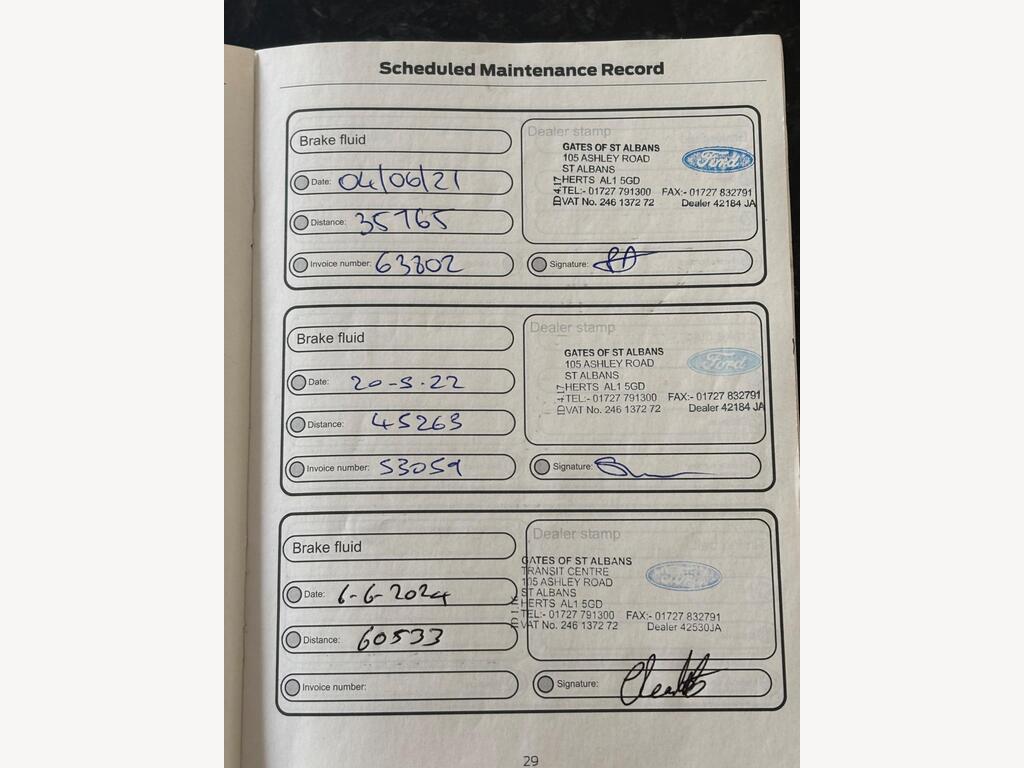 Scheduled Maintenance Record
Brake fluid
Date: 04/06/21
Distance: 35765
Invoice number: 63802
Dealer stamp
GATES OF ST ALBANS
105 ASHLEY ROAD
ST ALBANS
HERTS AL1 5GD
TEL:- 01727 791300 FAX:- 01727 832791
VAT No. 246 1372 72 Dealer 42184 JA
ID4.17
Ford
Signature:
Brake fluid
Date: 20-5-22
Distance: 45263
Invoice number: 53059
Dealer stamp
GATES OF ST ALBANS
105 ASHLEY ROAD
ST ALBANS
HERTS AL1 5GD
TEL:- 01727 791300 FAX:- 01727 832791
VAT No. 246 1372 72 Dealer 42184 JA
Ford
Signature:
Brake fluid
Date: 6-6-2024
Distance: 60533
Invoice number:
Dealer stamp
GATES OF ST ALBANS
TRANSIT CENTRE
105 ASHLEY ROAD
ST ALBANS
HERTS AL1 5GD
TEL:- 01727 791300 FAX:- 01727 832791
VAT No. 246 1372 72 Dealer 42530JA
Ford
Signature:
29